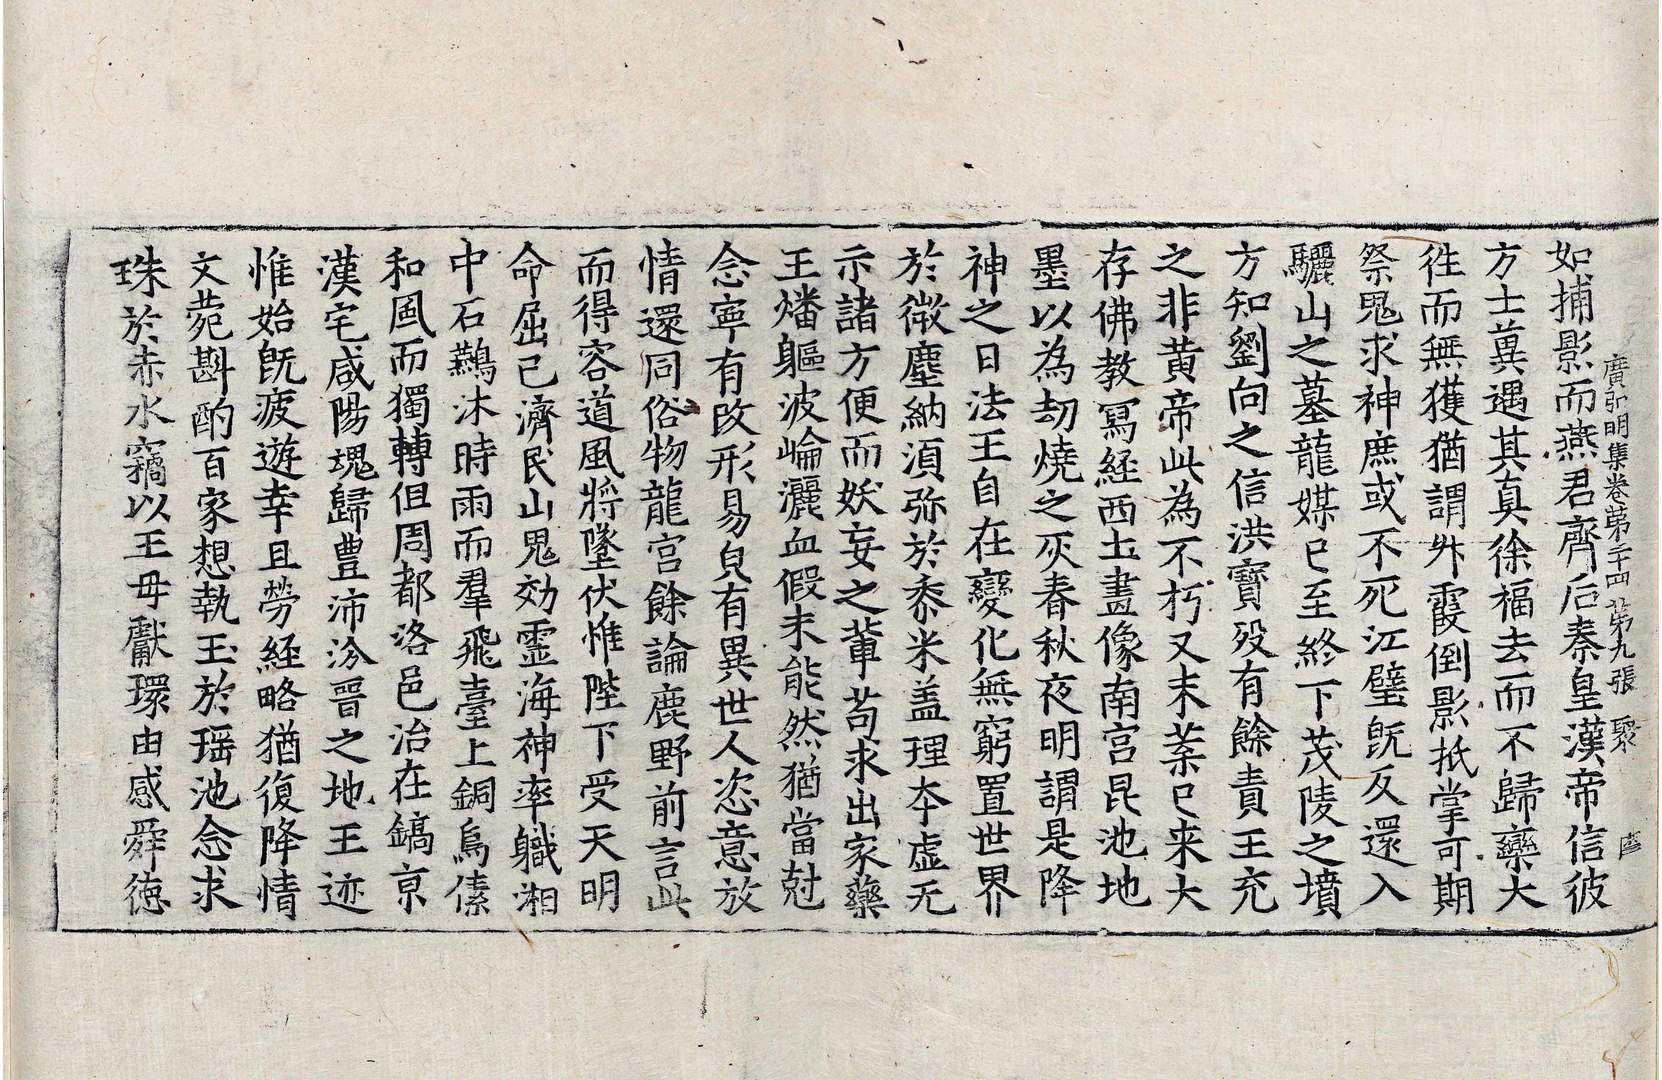 如捕影而燕君齊后秦皇漢帝信彼
廣弘明集卷第二十四 第九張 聚
方士冀遇其真徐福去而不歸藥大
徃而無獲猶謂升霞倒影抵掌可期
祭鬼求神庶或不死江璧旣反還入
驪山之墓龍媒已至終下茂陵之墳
方知劉向之信洪寶殁有餘責王充
之非黄帝此為不朽又末葉已来大
存佛教冩経西土畫像南宫昆池地
墨以為劫燒之灰春秋夜明謂是降
神之日法王自在變化無窮置世界
於微塵納湏弥於黍米盖理夲虚无
示諸方便而妖妄之輩苟求出家藥
王燔軀波崘灑血假未能然猶當尅
念寧有改形易皃有異世人恣意放
情還同俗物龍宫餘論鹿野前言此
而得容道風將墜伏惟陛下受天明
命屈己濟民山鬼効靈海神率職湘
中石鷰沐時雨而羣飛臺上銅烏傃
和風而獨轉但周都洛邑治在鎬京
漢宅咸陽魂歸豊沛汾晉之地王迹
惟始旣疲遊幸且勞経略猶復降情
文菀斟酌百家想執玉於瑶池念求
珠於赤水竊以王母獻環由感舜徳